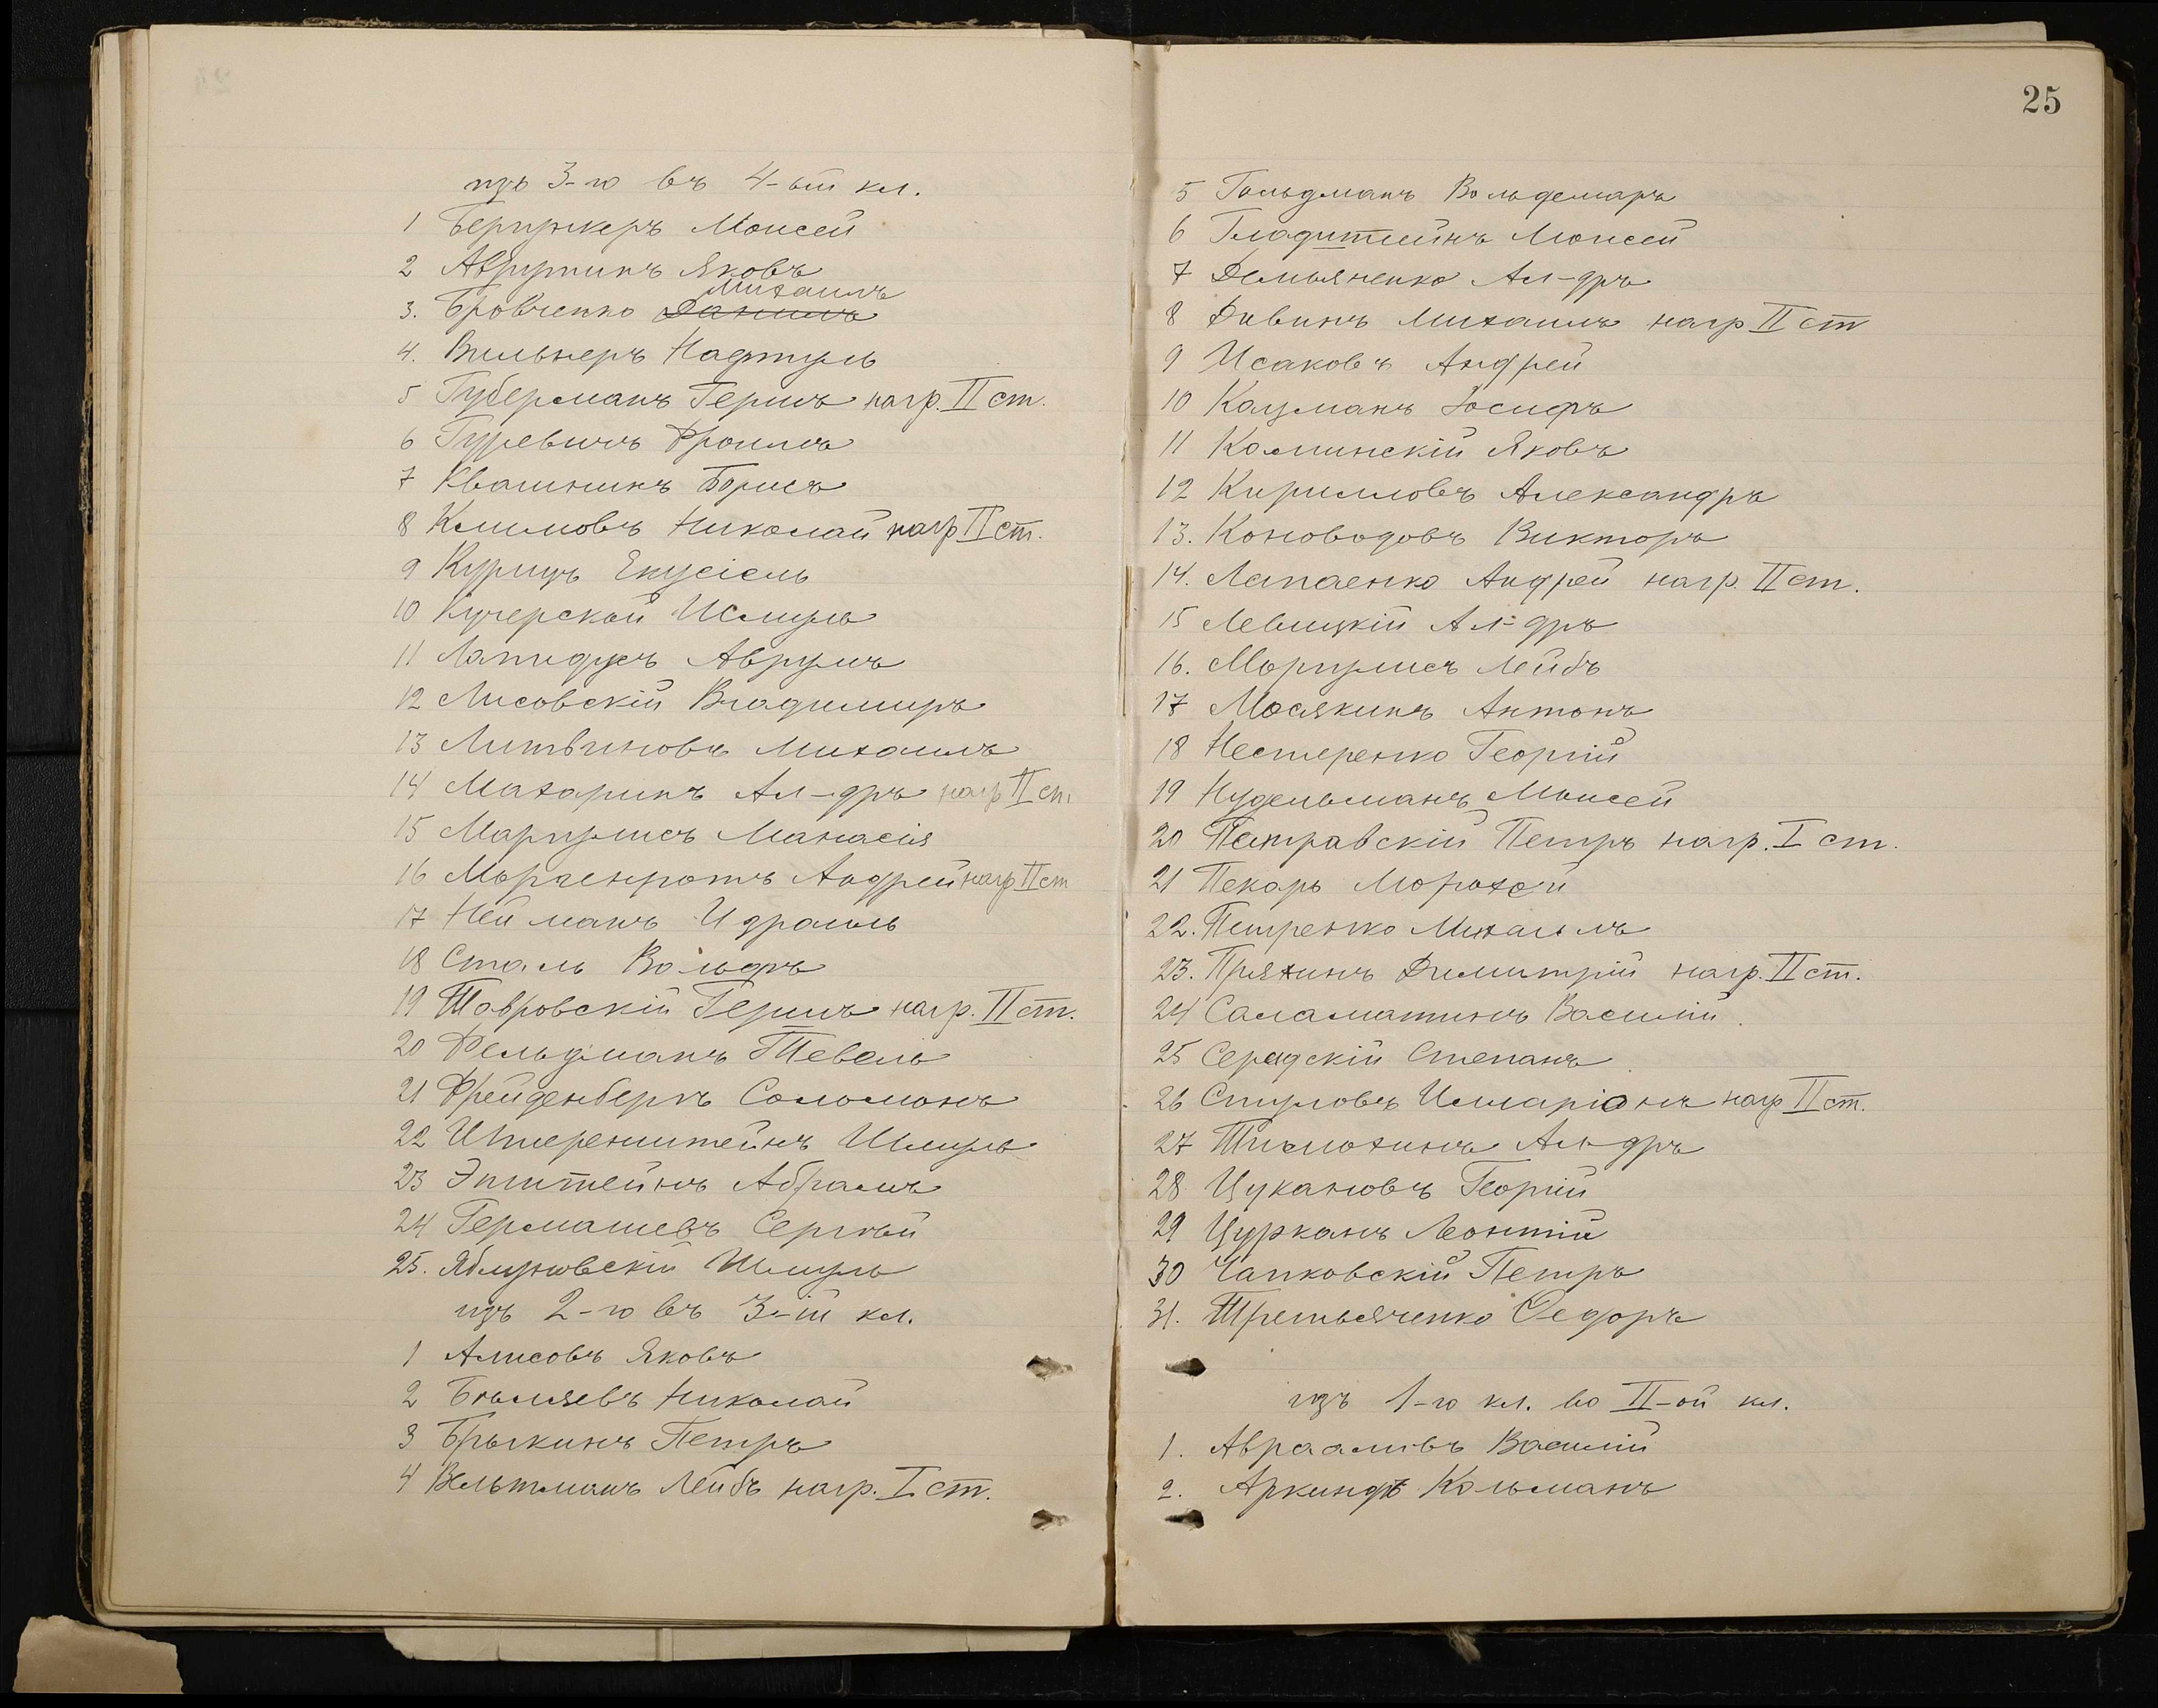 изъ 3-го въ 4-ый кл.
1 Берункеръ Моисей
2 Аврутинъ Яковъ
Михаилъ
3. Бровченко Данилъ
4. Вильнеръ Нафтуль
5 Губерманъ Гершъ нагр. II ст.
6 Гуревичъ Фроимъ
7 Квашнинъ Борисъ
8 Климовъ Николай нагр II ст.
9 Курицъ Екусіель
10 Кучерской Шмуль
11 Лапидусъ Аврумъ
12 Лисовскій Владимиръ
13 Литвиновъ Михаилъ
14 Махаринъ Ал-дръ нагр II ст.
15 Маргулисъ Манасія
16 Моргенротъ Андрей нагр II ст
17 Нейманъ Израиль
18 Сталь Вольфъ
19 Тавровскій Гершъ нагр. II ст.
20 Фельдманъ Тевель
21 Фрейденбергъ Соломонъ
22 Штеренштейнъ Шмуль
23 Эпштейнъ Абрамъ
24 Гермашевъ Сергѣй
25. Яблуновскій Шмуль
изъ 2-го въ 3-ій кл.
1 Алисовъ Яковъ
2 Бѣляевъ Николай
3 Брыкинъ Петръ
4 Вельтманъ Лейбъ нагр. I ст.
25
5 Гольдманъ Вольдемаръ
6 Гладштейнъ Моисей
7 Демьяненко Ал-дръ
8 Дивинъ Михаилъ нагр II ст
9 Исаковъ Андрей
10 Кацманъ Іосифъ
11 Каминскій Яковъ
12 Кирилловъ Александръ
13. Коноводовъ Викторъ
14. Лапаенко Андрей нагр. II ст.
15 Левицкій Ал-дръ
16. Моргулисъ Лейбъ
17 Мосякинъ Антонъ
18 Нестеренко Георгій
19 Нудельманъ Моисей
20 Петравскій Петръ нагр. I ст.
21 Пекарь Мордхой
22. Петренко Михаилъ
23. Пряхинъ Димитрій нагр. II ст.
24 Саламатинъ Василій.
25 Серадскій Степанъ.
26 Стуловъ Илларіонъ нагр II ст.
27 Тимохинъ Ал-дръ
28 Цукановъ Георгій
29 Цурканъ Леонтій
30 Чапковскій Петръ
31. Третьяченко Ѳедоръ
изъ 1-го кл. во II-ой кл.
1. Авраамовъ Василій
2. Аркиндъ Кальманъ